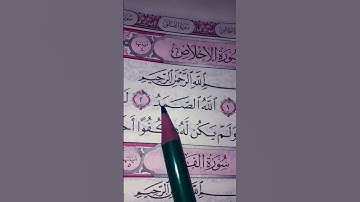 سُورَةُ الإِخْلَاصِ
للَّهِ الرَّحْمَٰنِ الرَّحِيمِ
١ اللَّهُ الصَّمَدُ ٢ لَ
وَلَمْ يَكُن لَّهُ كُفُوًا أَحَ
سُورَةُ الْفَ
للَّهِ الرَّحْمَٰنِ الرَّحِيمِ